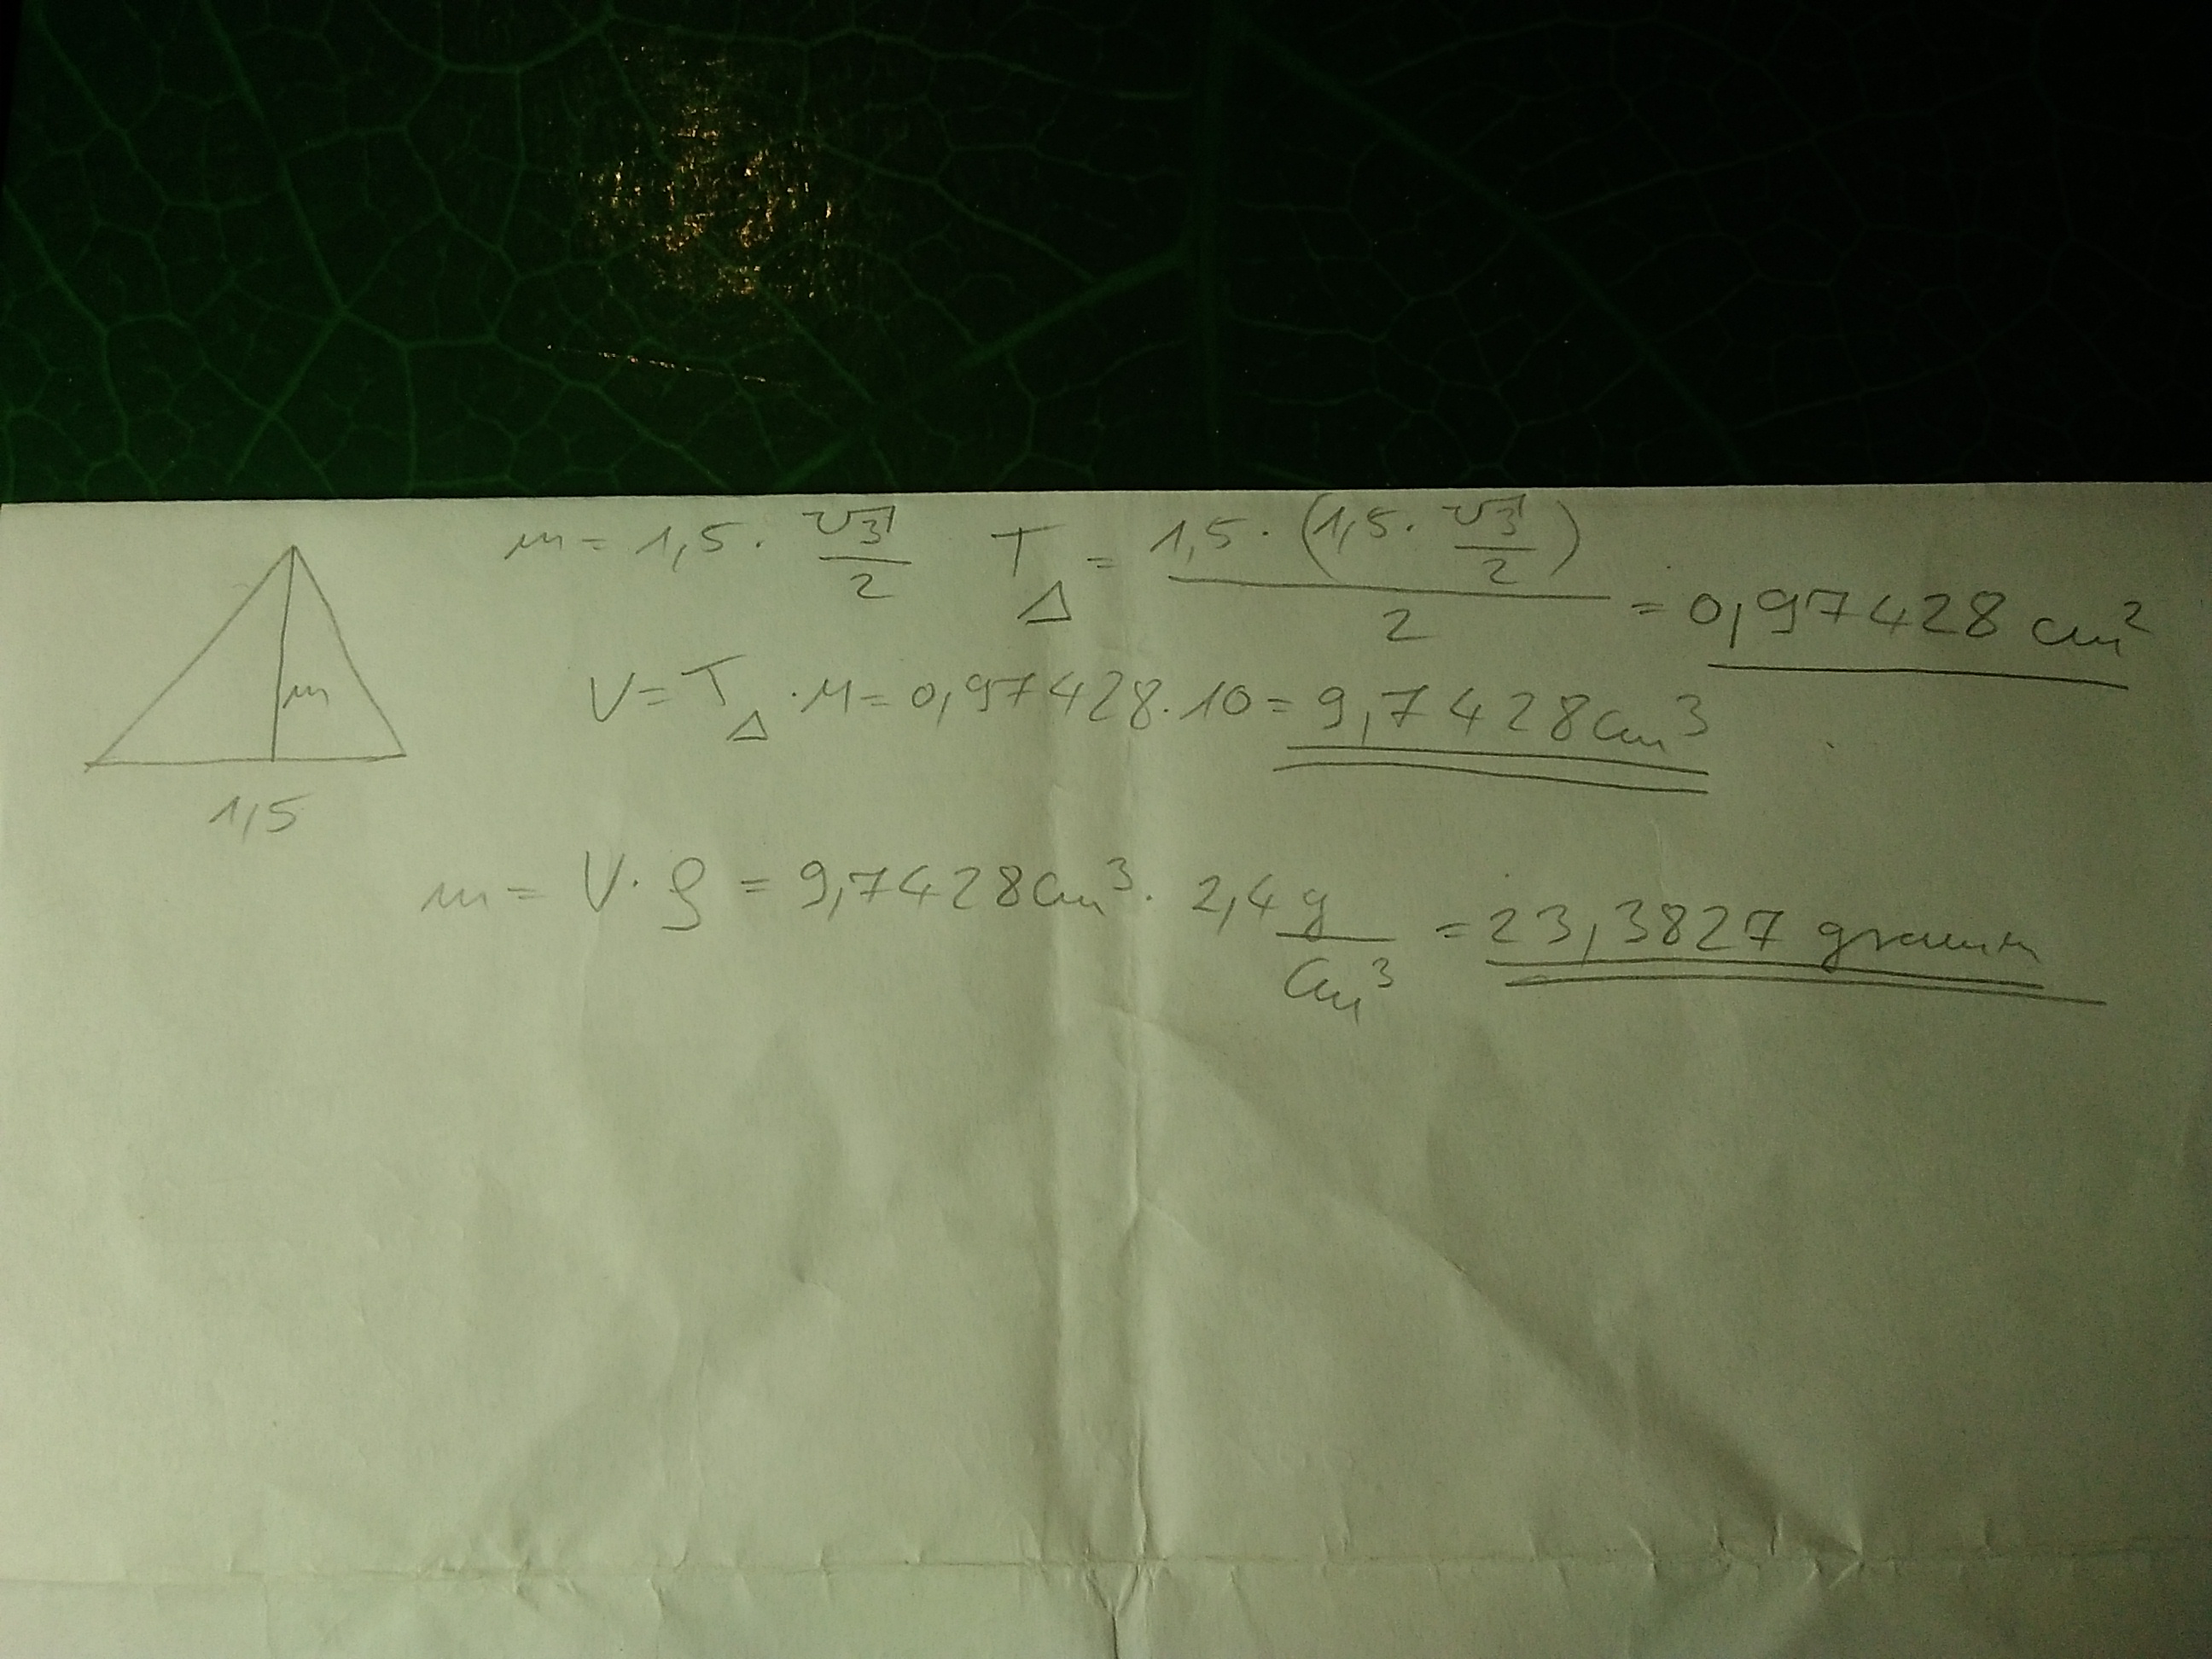 m = 1,5 · √3/2 T△ = 1,5 · (1,5 · √3/2) / 2 = 0,97428 cm²
m
V = T△ · M = 0,97428 · 10 = 9,7428 cm³
1,5
m = V · ρ = 9,7428 cm³ · 2,4 g/cm³ = 23,3827 gramm